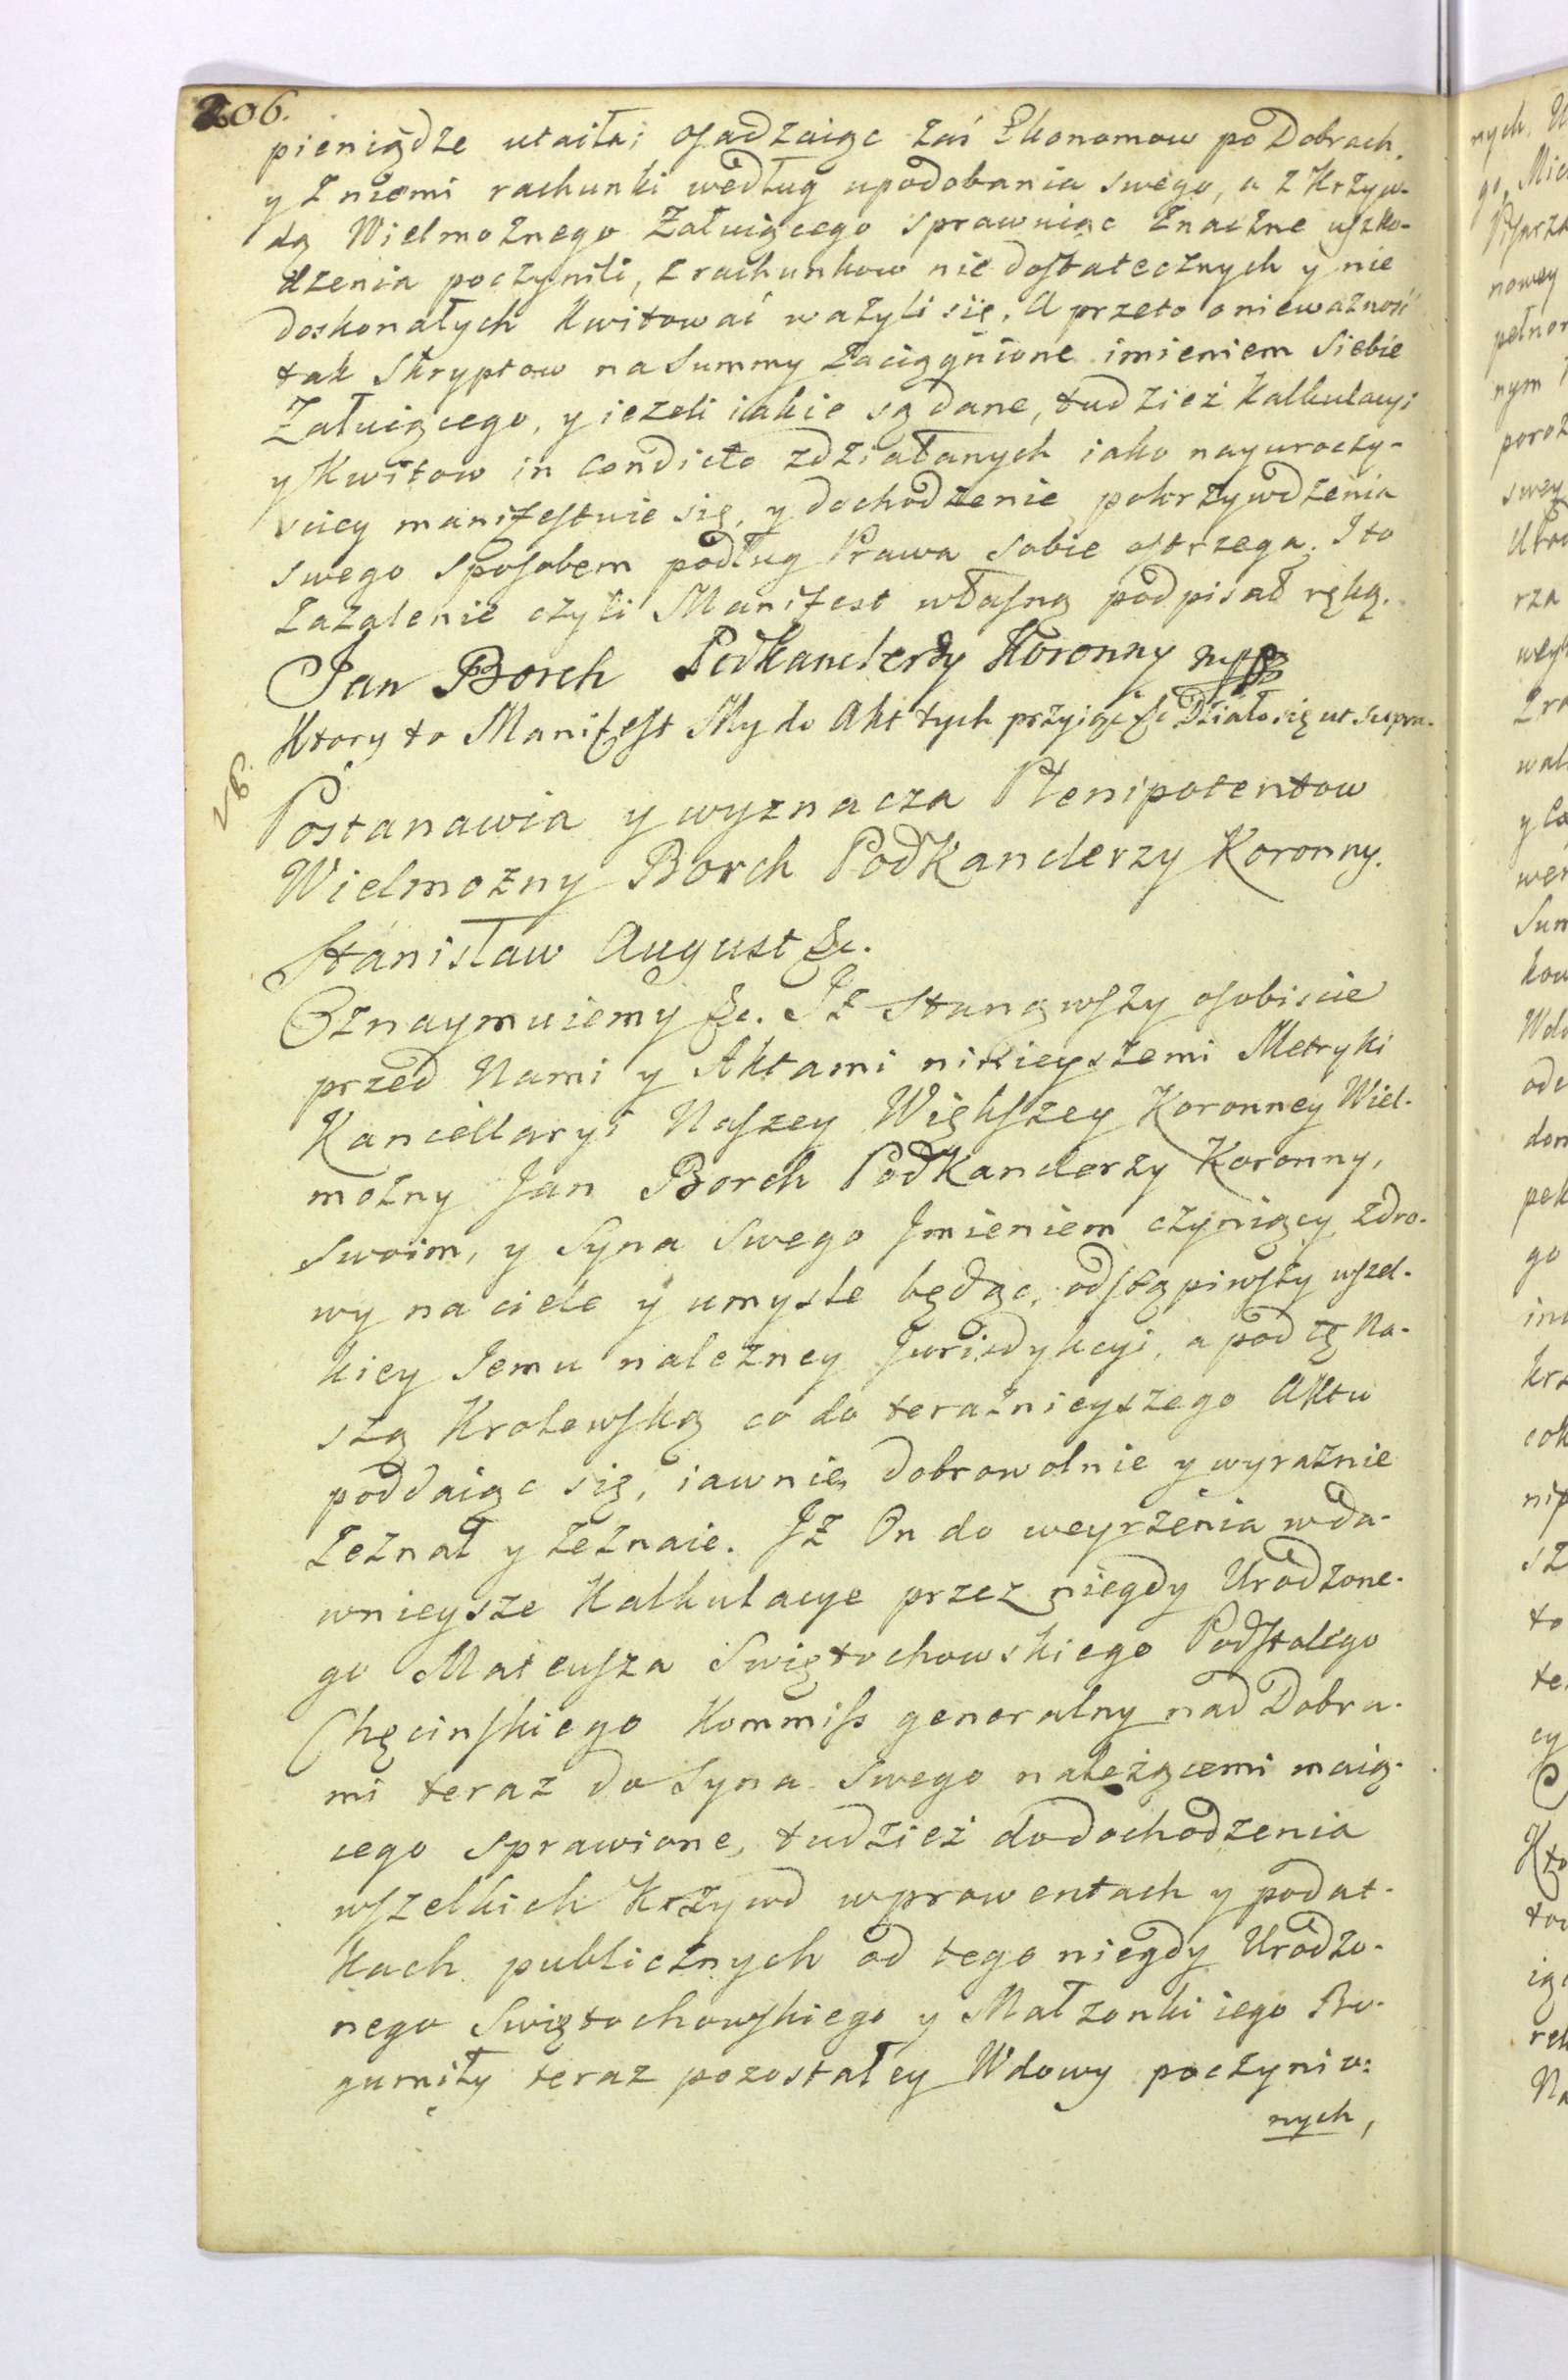 206.
pieniądze utaiła; osadzaiąc zaś Ekonomow po Dobrach,
y z niemi rachunki według upodobania swego, a z Krzyw-
dą Wielmożnego Załuiącego sprawuiąc znaczne uszko-
dzenia poczynili, z rachunkow nie dostatecznych y nie
doskonałych Kwitować ważyli się, A przeto o nieważność
tak Skryptow na Summy zaciągnione imieniem Siebie
Załuiącego, y ieżeli iakie są dane, tudzież Kalkulacyi
y Kwitow in Condicto zdziałanych iako nayuroczy-
sciey manifestuie się, y dochodzenie pokrzywdzenia
swego sposobem podług Prawa sobie ostrzega; I to
Zażalenie czyli Manifest własną podpisał ręką.
Jan Borch Podkanclerzy Koronny mpp
Ktory to Manifest My do Akt tych przyięć &c Działo się ut supra.
Postanawia y wyznacza Plenipotentow
Wielmożny Borch PodKanclerzy Koronny.
Stanisław August &c.
Oznaymuiemy &c. Iż Stanąwszy osobiscie
przed Nami y Aktami ninieyszemi Metryki
Kancellaryi Naszey Większey Koronney Wiel-
możny Jan Borch PodKanclerzy Koronny,
swoim, y Syna Swego Jmieniem czyniący, zdro-
wy na ciele y umysle będąc, odstąpiwszy wszel-
kiey Jemu należney Jurisdykcyi, a pod tę Na-
szą Krolewską co do teraźnieyszego Aktu
poddaiąc się, iawnie, dobrowolnie y wyraźnie
Zeznał y zeznaie. Jż On do weyrzenia w da-
wnieysze Kalkulacye przez niegdy Urodzone-
go Mateusza Swiętochowskiego Podstolego
Chęcinskiego Kommiss generalny nad Dobra-
mi teraz do Syna Swego należącemi maią-
cego sprawione, tudzież do dochodzenia
wszelkich Krzywd w prowentach y podat-
kach publicznych od tego niegdy Urodzo-
nego Swiętochowskiego y Małżonki iego Bo-
gumiły teraz pozostałey Wdowy poczynio:
nych,